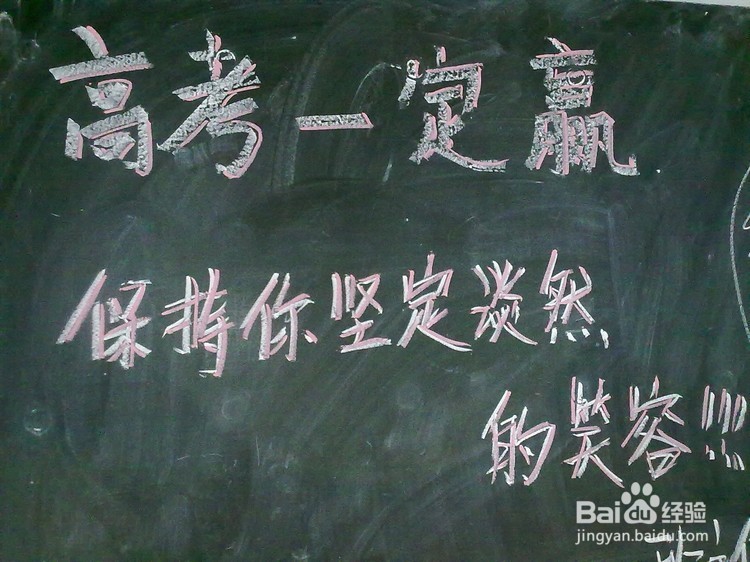 高考一定赢
保持你坚定淡然
的笑容!!!
Baidu经验
jingyan.baidu.com